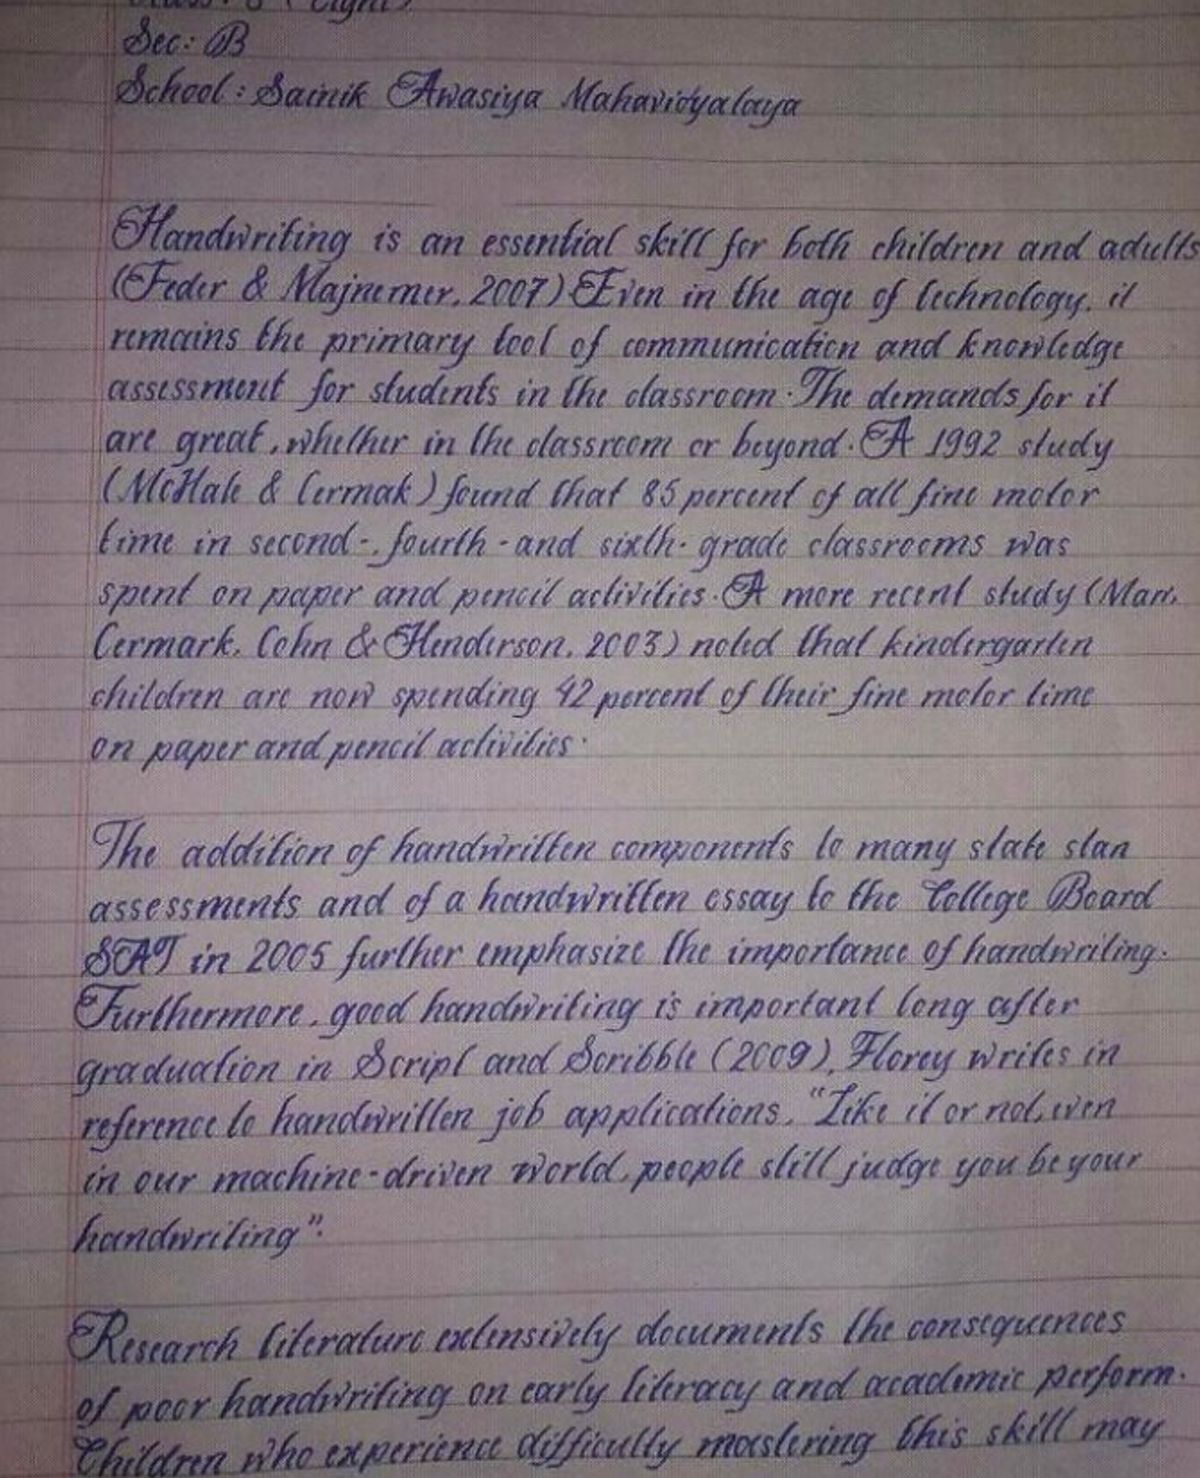 Class: 8 (Eight)
Sec: B
School: Sainik Awasiya Mahavidyalaya
Handwriting is an essential skill for both children and adults
(Feder & Majnemer, 2007) Even in the age of technology, it
remains the primary tool of communication and knowledge
assessment for students in the classroom. The demands for it
are great, whether in the classroom or beyond. A 1992 study
(McHale & Cermak) found that 85 percent of all fine motor
time in second-, fourth-and sixth-grade classrooms was
spent on paper and pencil activities. A more recent study (Marr,
Cermark, Cohn & Henderson, 2003) noted that kindergarten
children are now spending 42 percent of their fine motor time
on paper and pencil activities.
The addition of handwritten components to many state stan
assessments and of a handwritten essay to the College Board
SAT in 2005 further emphasize the importance of handwriting.
Furthermore, good handwriting is important long after
graduation in Script and Scribble (2009), Florey writes in
reference to handwritten job applications, "Like it or not, even
in our machine-driven world, people still judge you be your
handwriting".
Research literature extensively documents the consequences
of poor handwriting on early literacy and academic perform.
Children who experience difficulty mastering this skill may